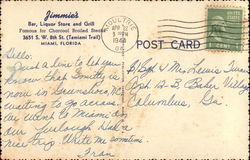 Jimmie's
Bar, Liquor Store and Grill
Famous for Charcoal Broiled Steaks
1651 S. W. 8th St. (Tamiami Trail)
MIAMI, FLORIDA
MOULTRIE
1944
GA.
POST CARD
Hello,
Just a line to let you
know that Smitty is
now in Greensboro, NC
waiting to go across.
We went to Miami on
our furlough. Had a
nice trip. Write me sometime.
Fran
S/Sgt & Mrs. Louis
Apt. B. Baker Village
Columbus, Ga.